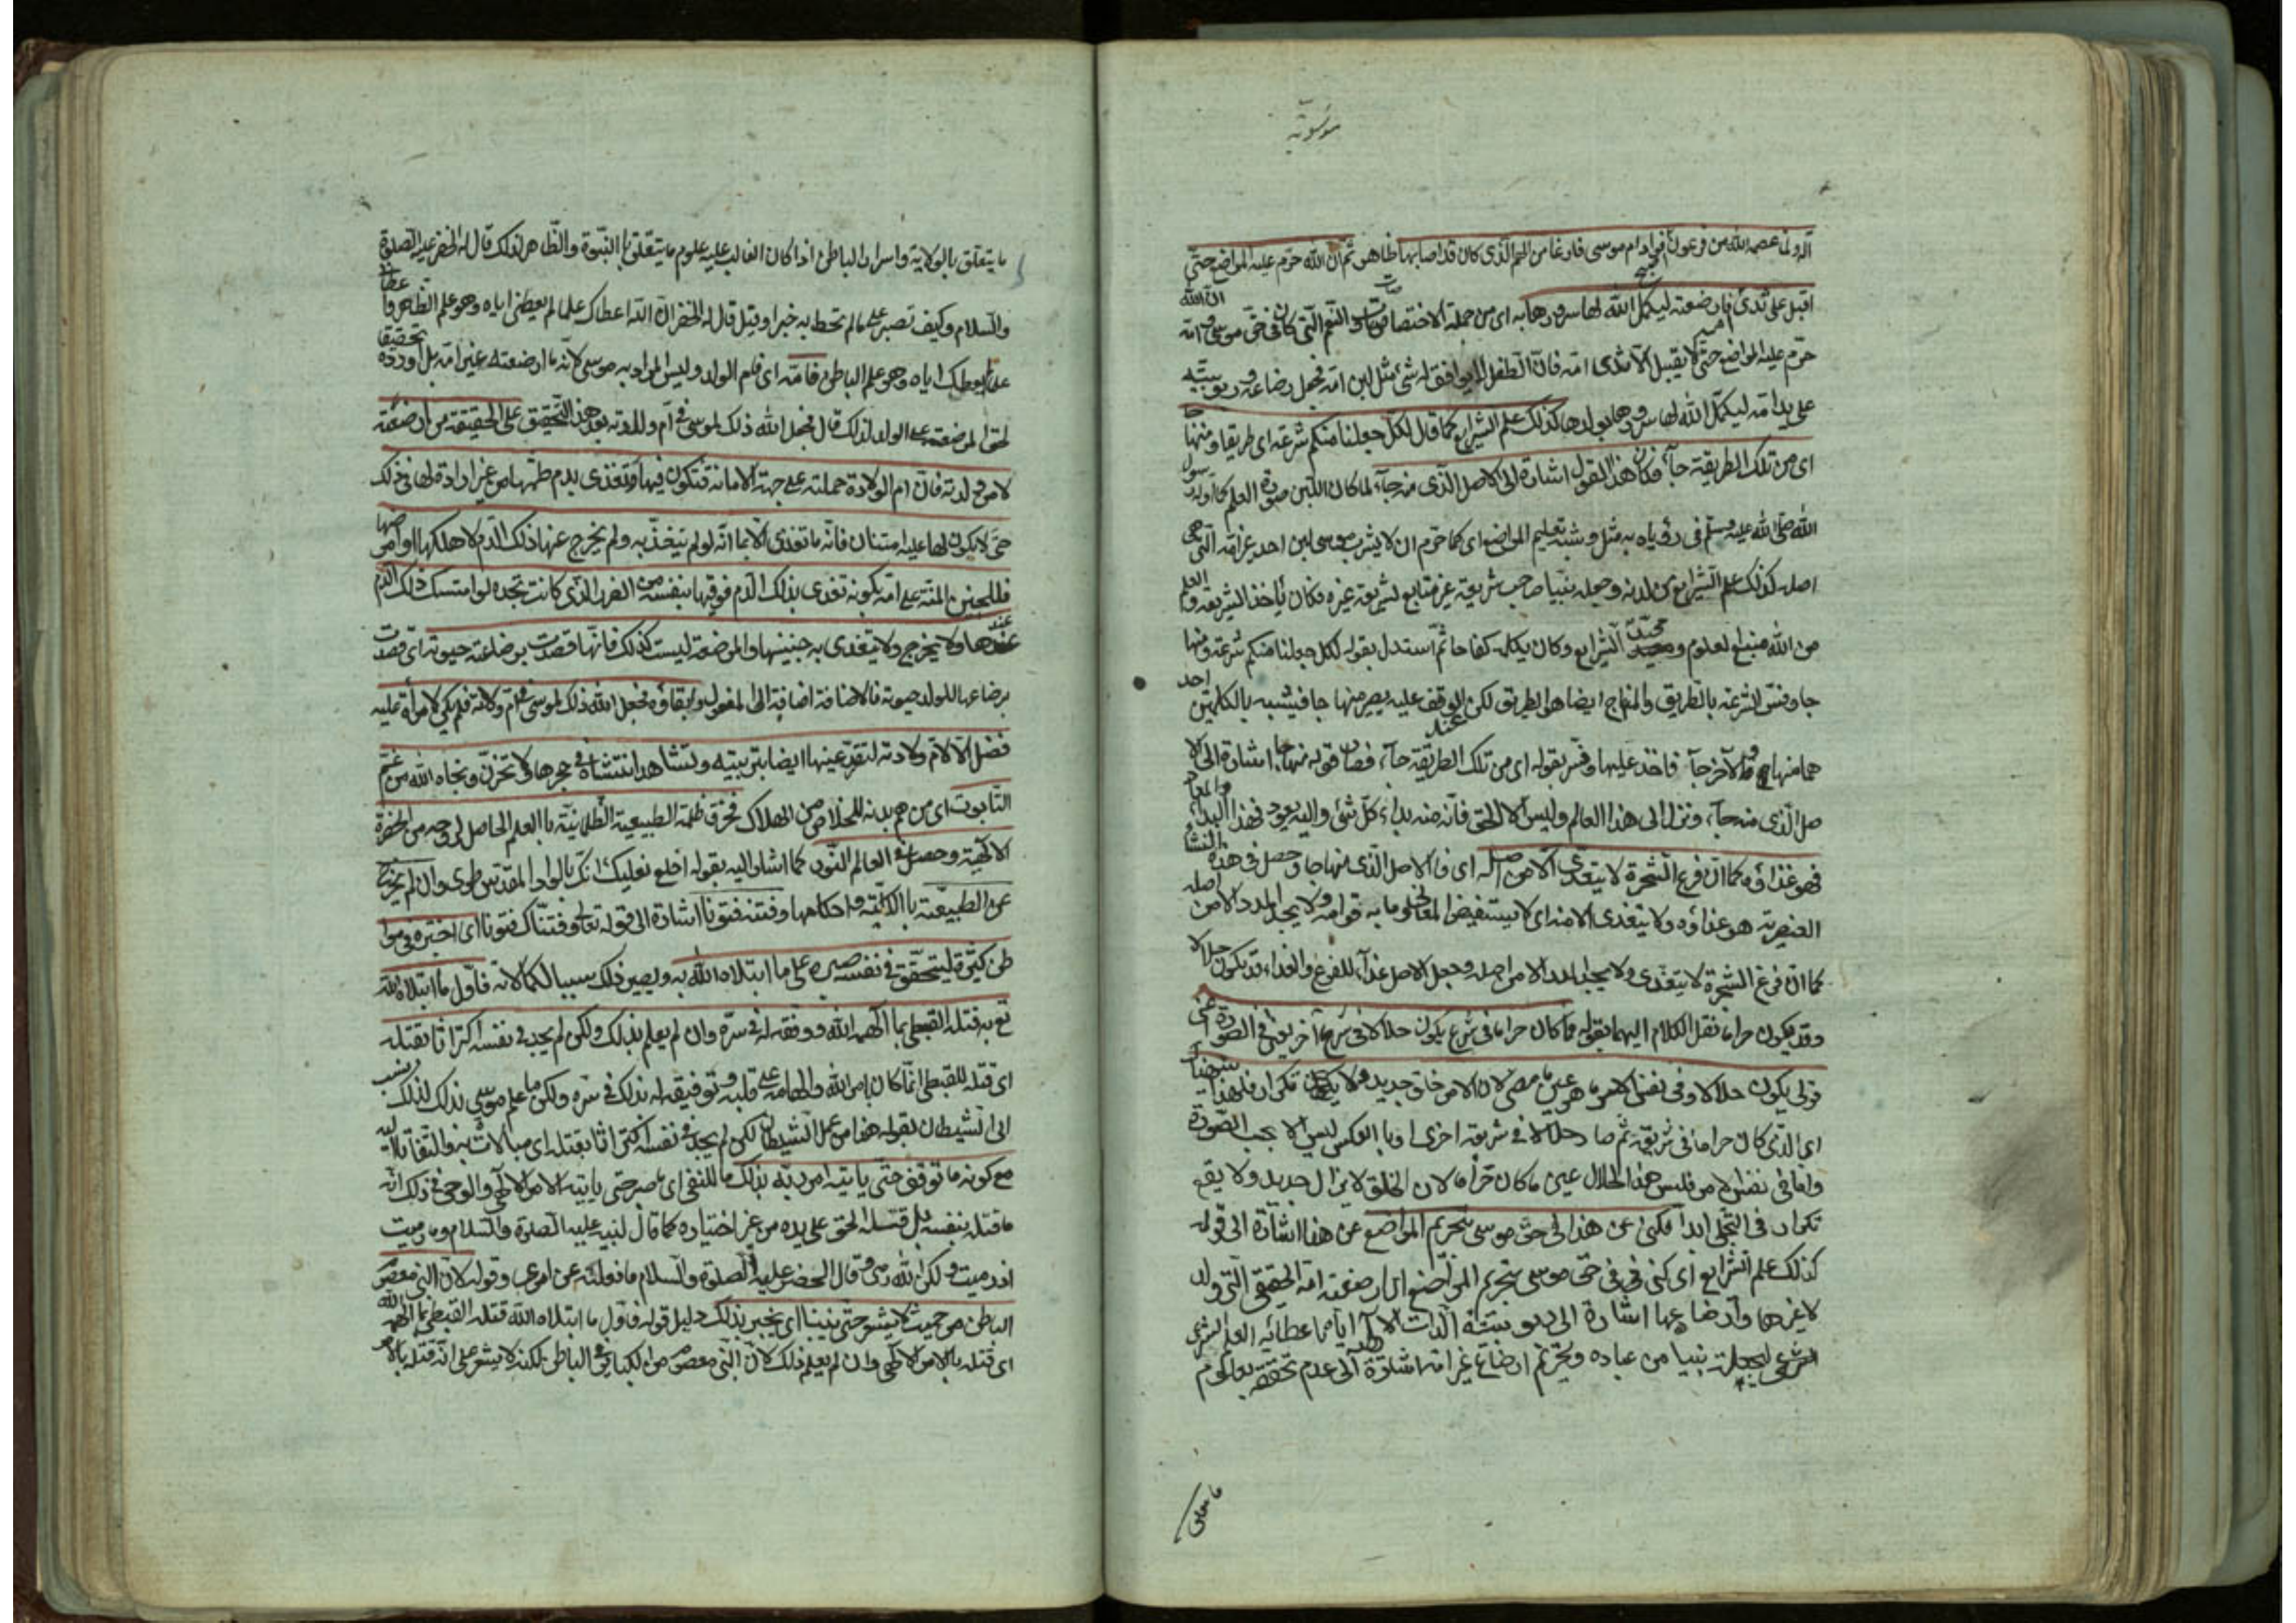 موسويّة
الهلاك عصمه الله من فرعون فؤاد ام موسى فارغا من الهم الذى كان قد اصابها ظاهر ثم ان الله حرّم عليه المراضع حتى
اقبل على ثدى فارضعته ليكمّل الله لها سرورها به اى من جملة الاختصاصات والنعم التى كان فى حق موسى ان الله
حرّم عليه المراضع حتى لا يقبل الا ثدى امّه فان الطفل لا يوافق له شئ مثل لبن امه فجعل رضاعه وتربيته
على يد امّه ليكمّل الله لها سرورها بولدها كذلك علم الشرايع كما قال لكل جعلنا منكم شرعة اى طريقا ومنها جا
اى من تلك الطريقة جآء فكان هذا القول اشارة الى الاصل الذى منه جآء لما كان اللبن صورة العلم كما اوله رسول
الله صلى الله عليه وسلم فى رؤياه به مثل وشبه تعليم المراضع اى كما حرّم ان لا يشرب موسى لبن احد غير امّه التى هى
اصله كذلك علم الشرايع من لدنه وجعله نبيا صاحب شريعة غير متابع لشريعة غيره فكان يأخذ الشريعة والعلم
من الله منبع العلوم الشرايع وكان يكلمه كفاحا ثم استدل بقوله لكل جعلنا منكم شرعة ومنها
جا وفسّر الشرعة بالطريق والمنهاج ايضا هو الطريق لكن الوقف عليه يصير منها جا فيشبه بالكلمتين احد
هما منها والآخر جآء فاخذ عليها وفسّر بقوله اى من تلك الطريقة جآء فصار قوله منها جا اشارة الى الا
صل الذى منه جآء ونزل الى هذا العالم وليس الا الحق فانه منه بداء كل شئ واليه يعود فهذا البداء والمعاد
فهو غذاؤه كما ان فرع الشجرة لا يتغدى الا من اصله اى فالاصل الذى منها جا وحصل فى هذه النشأ
العنصرية هو غذاؤه ولا يتغدى الا منه اى لا يستفيض المعانى وما به قوامه ولا يجد المدد الا من اصله
كما ان فرع الشجرة لا يتغذى ولا يجد المدد الا من اصله وجعل الاصل غذآء للفرع والغذاء قد يكون حلالا
وقد يكون حراما نقل الكلام اليهما بقوله فما كان حراما فى شرع يكون حلالا فى شرع آخر يعنى فى الصورة اعنى
قولى يكون حلالا وفى نفس الامر ما هو عين ما مضى لان الامر خلق جديد ولا تكرار فلهذا
اى الذى كان حراما فى شريعة ثم صار حلالا فى شريعة اخرى او بالعكس ليس الا بحسب الصورة
واما فى نفس الامر فليس هذا الحلال عين ما كان حراما لان الخلق لا يزال جديد ولا يقع
تكرار فى التجلى ابدا فكنى عن هذا فى حق موسى بتحريم المراضع عن هذا اشارة الى قوله
كذلك علم الشرايع اى كنى فى حق موسى بتحريم المراضع الى ارضعته امّه الحقيقى التى ولد
لا غيرها وارضاعها اشارة الى ربوبيته الذات الالهية اياه باعطائه العلم
الشرعى نبيا من عباده وتحريم ارضاع غير امّه اشارة الى عدم تحققه بعلوم
ما يتعلق
ما يتعلق بالولاية واسرار الباطن اذا كان الغالب عليه علوم ما يتعلق بالنبوة والظاهر لذلك قال له الخضر عليه الصلوة
والسلام وكيف تصبر على مالم تحط به خبرا وقيل قال له الخضر ان الله اعطاك علما لم يعطنى اياه وهو علم الظاهر واعطا
علما لم يعطك اياه وهو علم الباطن فامّه اى فام الولد وليس المراد به موسى لانه ما ارضعته غير امّه بل اورده تحقيقا
لحق المرضعة على الوالدة لذلك قال فجعل الله ذلك لموسى فى ام ولادته بعد هذا التحقيق على الحقيقة من ارضعته
لا من ولدته فان ام الولادة حملته على جهة الامانة فتكون فيها وتغذى بدم طمثها من غير ارادة لها فى ذلك
حتى لا يكون لها عليه امتنان فانه ما تغذى الا بما انه لو لم يتغذ به ولم يخرج عنها ذلك الدم لاهلكها وامرضها
فللجنين المنة على امّه بكونه تغذى بذلك الدم فوقيها بنفسه من الضرر الذى كانت تجده لو امتسك ذلك الدم
عندها ولا يخرج ولا يتغذى به جنينها والمرضعة ليست كذلك فانها قصدت برضاعته حيوته اى قصدت
برضاعها للولد حيوته فالاضافة اضافة الى المفعول وابقاؤه فجعل الله ذلك لموسى فى ام ولادته فلم يكن لامرأة عليه
فضل الا لام ولادته لتقر عينها ايضا بتربيته وتشاهد انتشاءه فى حجرها ولا تحزن ونجاه الله من غم
التابوت اى من هم بدنه للخلاص من الهلاك فخرق ظلمة الطبيعة الظلمانية بالعلم الحاصل له من الحضرة
الالهية وحصل فى العالم النورى كما اشار اليه بقوله اخلع نعليك انك بالواد المقدس طوى وان لم يخرج
عن الطبيعة بالكلية واحكامها وفتنه فتونا اشارة الى قوله تعالى وفتناك فتونا اى اختبره فى موا
طن كثيرة ليتحقق فى نفسه صبره على ما ابتلاه الله به ويصير ذلك سببا لكمالاته فاول ما ابتلاه الله
تع به قتله القبطى بما الهمه الله ووفقه له فى سره وان لم يعلم بذلك ولكن لم يجد فى نفسه اكتراثا بقتله
اى قتله للقبطى انما كان بامر الله والهامه على قلبه وتوفيقه له بذلك فى سره ولكن ما علم موسى بذلك لذلك نسب
الى الشيطان بقوله هذا من عمل الشيطان لكن لم يجد فى نفسه اكتراثا بقتله اى مبالات به والتفاتا اليه
مع كونه ما توقف حتى يأتيه امر ربه بذلك ما للنفى اى ما صبر حتى يأتيه الامر الالهى والوحى فى ذلك انه
ما قتله بنفسه بل قتله الحق على يده من غير اختياره كما قال لنبيه عليه الصلوة والسلام وما رميت
اذ رميت ولكن الله رمى وقال الخضر عليه الصلوة والسلام ما فعلته عن امرى وقوله لان النبى معصوم
الباطن من حيث لا يشعر حتى ينبأ اى يخبر بذلك دليل قوله فاول ما ابتلاه الله قتله القبطى بما الهمه الله
اى قتله بالامر الالهى وان لم يعلم ذلك لان النبى معصوم من الكبائر فى الباطن لكنه لا يشعر على انه قتله بالامر